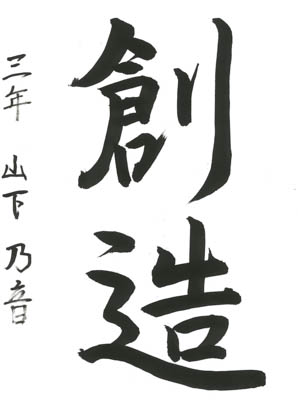 創造
三年 山下乃音